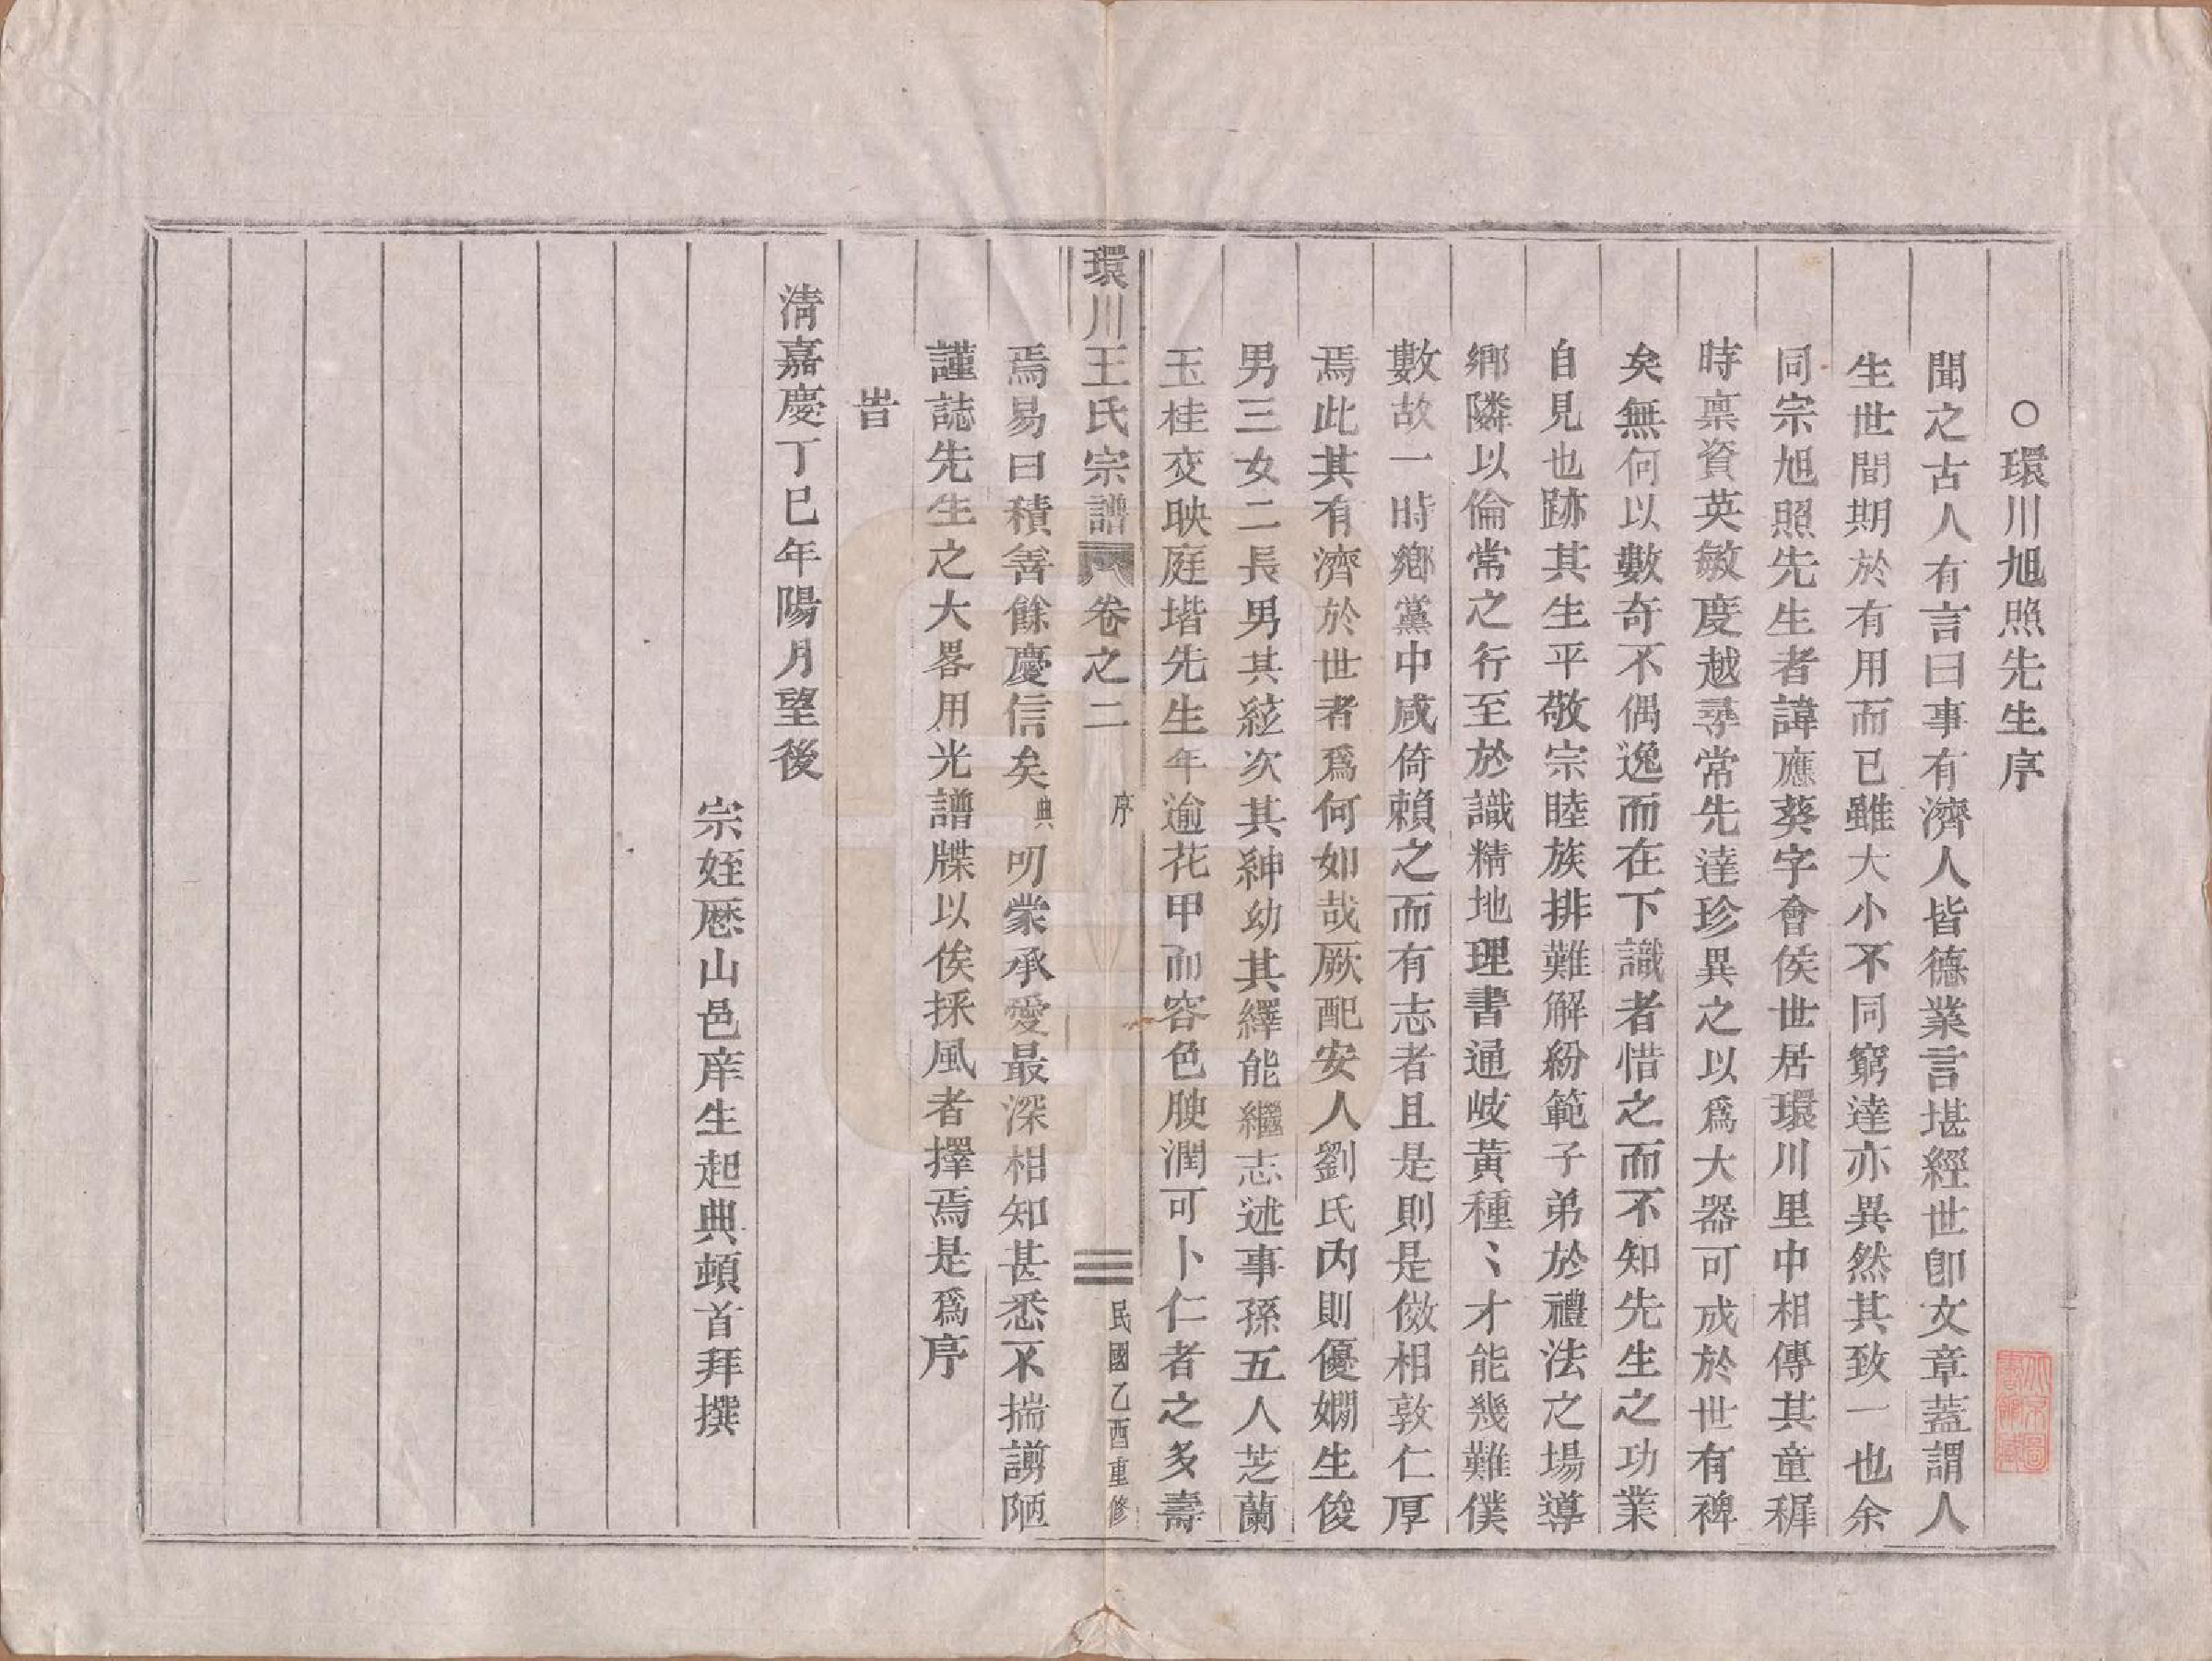 ○環川旭照先生序
聞之古人有言曰事有濟人皆德業言堪經世卽文章蓋謂人
生世間期於有用而已雖大小不同窮達亦異然其致一也余
同宗旭照先生者諱應葵字會侯世居環川里中相傳其童穉
時禀資英敏度越尋常先達珍異之以爲大器可成於世有裨
矣無何以數奇不偶逸而在下識者惜之而不知先生之功業
自見也跡其生平敬宗睦族排難解紛範子弟於禮法之場導
鄉隣以倫常之行至於識精地理書通岐黃種〻才能幾難僕
數故一時鄉黨中咸倚賴之而有志者且是則是傚相敦仁厚
焉此其有濟於世者爲何如哉厥配安人劉氏內則優嫺生俊
男三女二長男其絃次其紳幼其繹能繼志述事孫五人芝蘭
玉桂交映庭堦先生年逾花甲而容色腴潤可卜仁者之多壽
環川王氏宗譜 卷之二 序 三 民國乙酉重修
焉易曰積善餘慶信矣典叨蒙承愛最深相知甚悉不揣謭陋
謹誌先生之大畧用光譜牒以俟採風者擇焉是爲序
旹
淸嘉慶丁巳年陽月望後
宗姪厯山邑庠生起典頓首拜撰